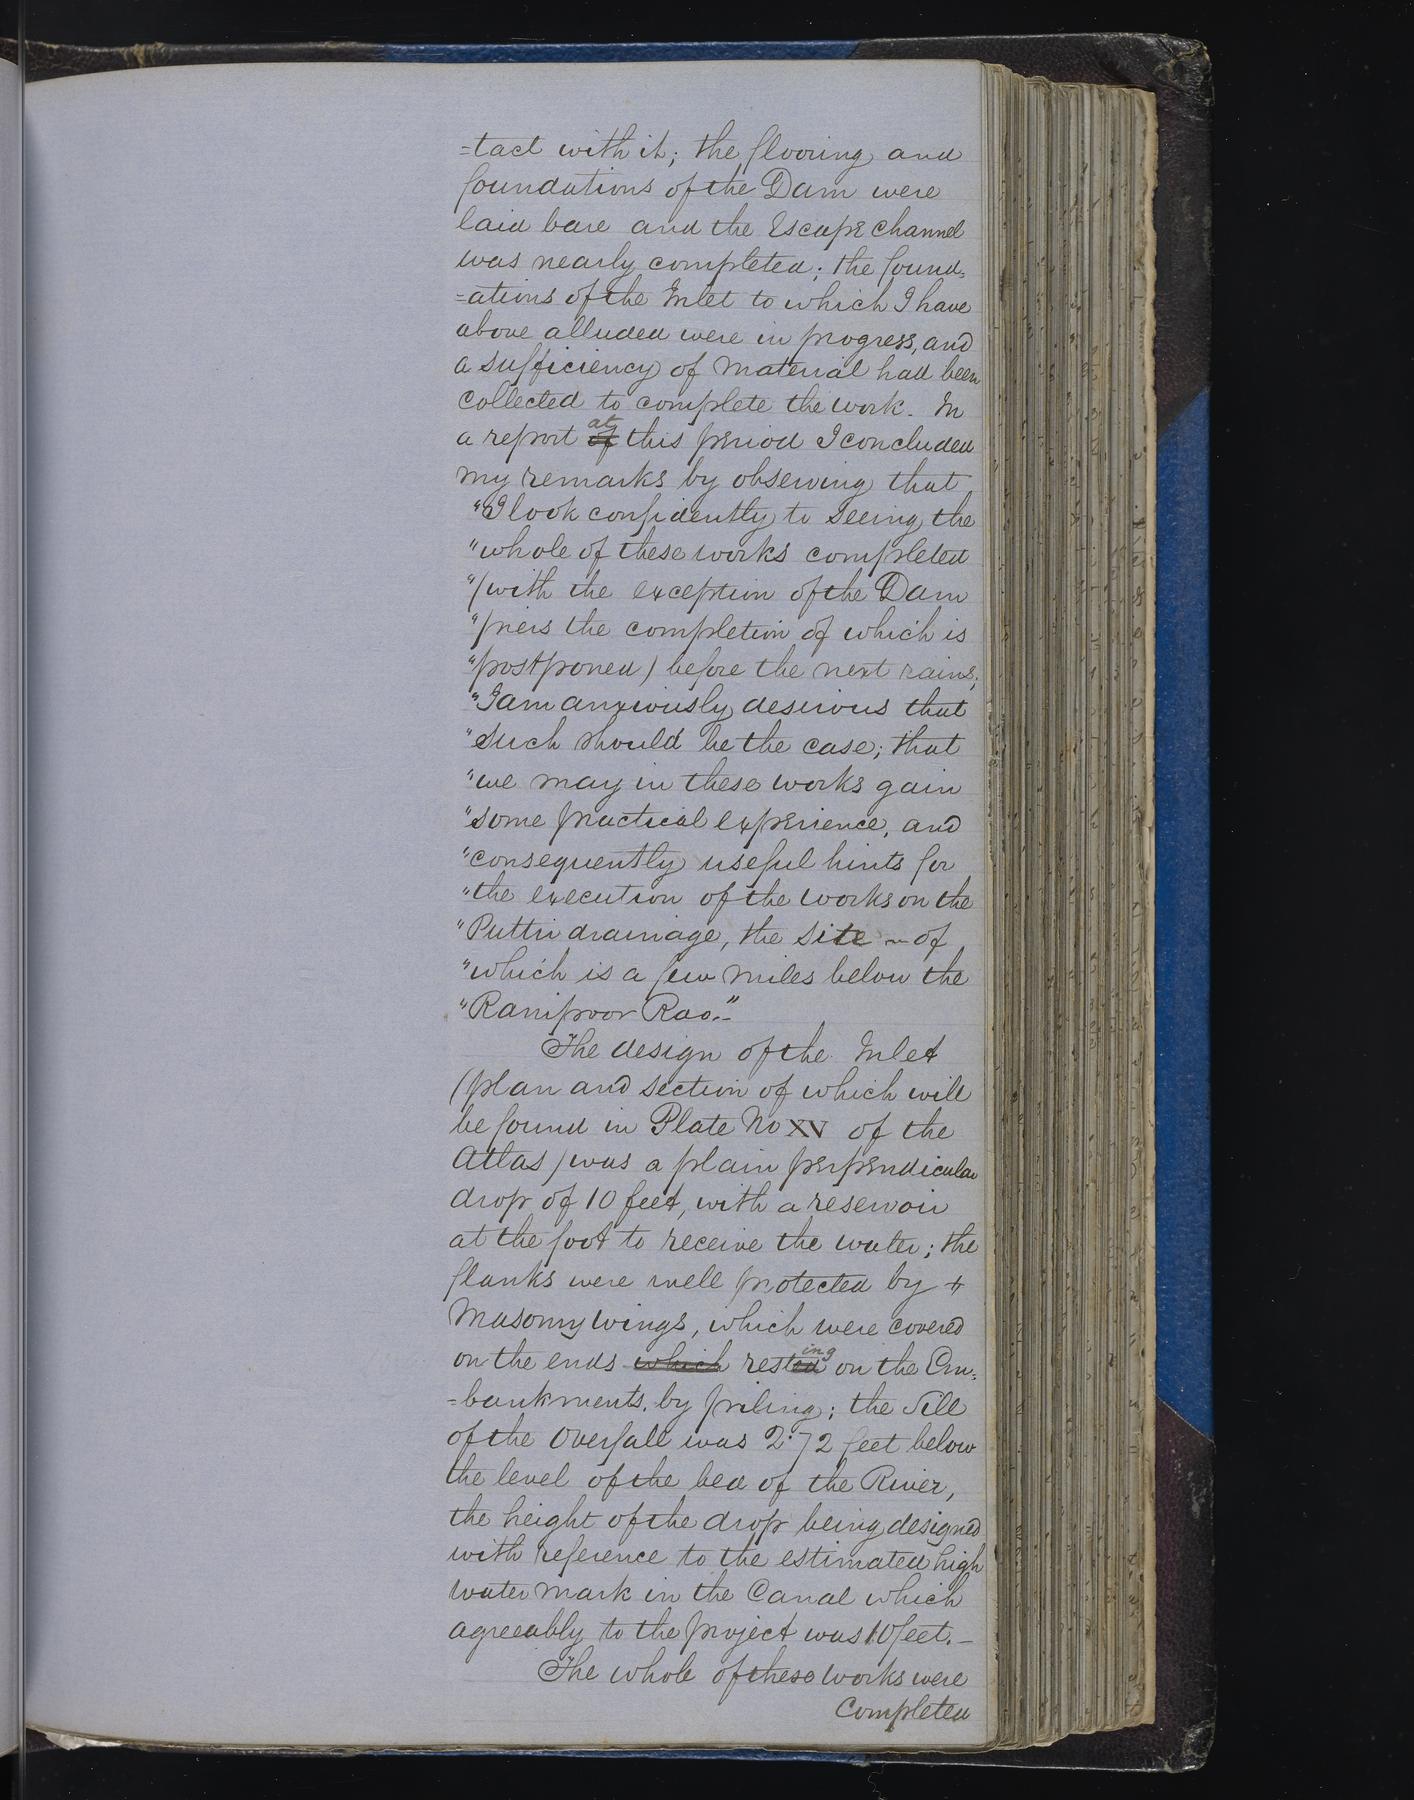 =tact with it; the flooring and
foundations of the Dam were
laid bare and the Escape channel
was nearly completed; the found=
=ations of the Inlet to which I have
above alluded were in progress, and
a sufficiency of material had been
collected to complete the work. In
a report of at this period I concluded
my remarks by observing that
"I look confidently to seeing the
"whole of these works completed
"(with the exception of the Dam
"piers the completion of which is
"postponed) before the next rains;
"I am anxiously desirous that
"such should be the case; that
"we may in these works gain
"some practical experience, and
"consequently useful hints for
"the execution of the works on the
"Puttri drainage, the site ~ of
"which is a few miles below the
"Ranipoor Rao."
The design of the Inlet
(plan and section of which will
be found in Plate No XV of the
Atlas) was a plain perpendicular
drop of 10 feet, with a reservoir
at the foot to receive the water; the
flanks were well protected by +
Masonry wings, which were covered
on the ends which rested ing on the Em=
=bankments. by piling; the Sill
of the Overfall was 2.72 feet below
the level of the bed of the River,
the height of the drop being designed
with reference to the estimated high
water mark in the Canal which
agreeably to the project was 10 feet. _
The whole of these works were
Completed